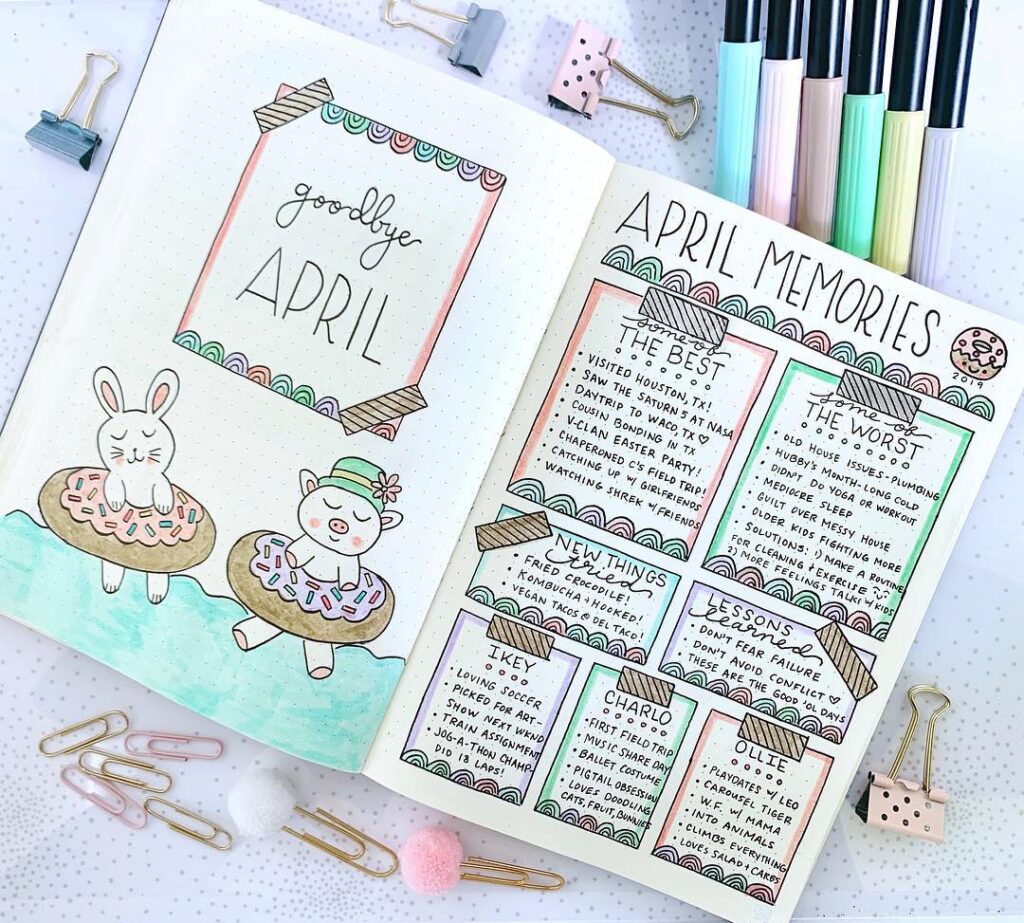 goodbye
APRIL
APRIL MEMORIES
2019
some of
THE BEST
• VISITED HOUSTON, TX!
• SAW THE SATURN 5 AT NASA
• DAYTRIP TO WACO, TX ♡
• COUSIN BONDING IN TX
• V-CLAN EASTER PARTY!
• CHAPERONED C'S FIELD TRIP!
• CATCHING UP W/ GIRLFRIENDS
• WATCHING SHREK W/FRIENDS
some of
THE WORST
• OLD HOUSE ISSUES-PLUMBING
• HUBBY'S MONTH-LONG COLD
• DIDN'T DO YOGA OR WORKOUT
• MEDIOCRE SLEEP
• GUILT OVER MESSY HOUSE
• OLDER KIDS FIGHTING MORE
• SOLUTIONS: 1) MAKE A ROUTINE
FOR CLEANING + EXERCISE
2) MORE FEELINGS TALKS W/ KIDS
NEW THINGS
tried
• FRIED CROCODILE!
• KOMBUCHA + HOOKED!
• VEGAN TACOS @ DEL TACO!
LESSONS
learned
• DON'T FEAR FAILURE
• DON'T AVOID CONFLICT ♡
• THESE ARE THE GOOD 'OL DAYS
IKEY
• LOVING SOCCER
• PICKED FOR ART-
SHOW NEXT WKND
• TRAIN ASSIGNMENT
• JOG-A-THON CHAMP-
DID 18 LAPS!
CHARLO
• FIRST FIELD TRIP
• MUSIC SHARE DAY
• BALLET COSTUME
• PIGTAIL OBSESSION
• LOVES DOODLING
CATS, FRUIT, BUNNIES
OLLIE
• PLAYDATES W/ LEO
• CAROUSEL TIGER
W.F. W/ MAMA
• INTO ANIMALS
• CLIMBS EVERYTHING
• LOVES SALAD + CARBS